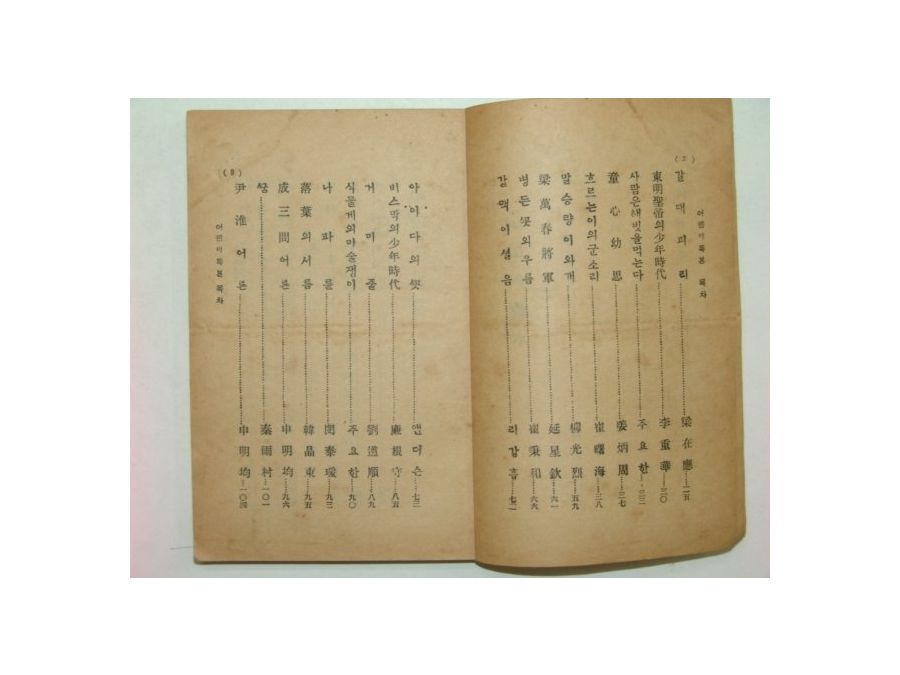 (2)
어린이독본 목차
갈대피리………梁在應……二五
東明聖帝의少年時代………李重華……三〇
사람은햇빗을먹는다………주요한……三二
童心幼思………姜炳周……三七
흐르는이의군소리………崔曙海……三八
말승량이와개………柳光烈……五九
梁萬春將軍………延星欽……六一
병든꼿의우름………崔秉和……六六
갈맥이설음………리갑흠……七二
(3)
어린이독본 목차
아이다의꼿………앤더슨……七三
비스막의少年時代………廉根守……八五
거미줄………劉道順……八九
식물게의마술쟁이………주요한……九〇
나파륜………閔泰瑗……九三
落葉의서름………韓晶東……九五
成三問어른………申明均……九六
꿩………秦雨村……一〇一
尹淮어른………申明均……一〇四